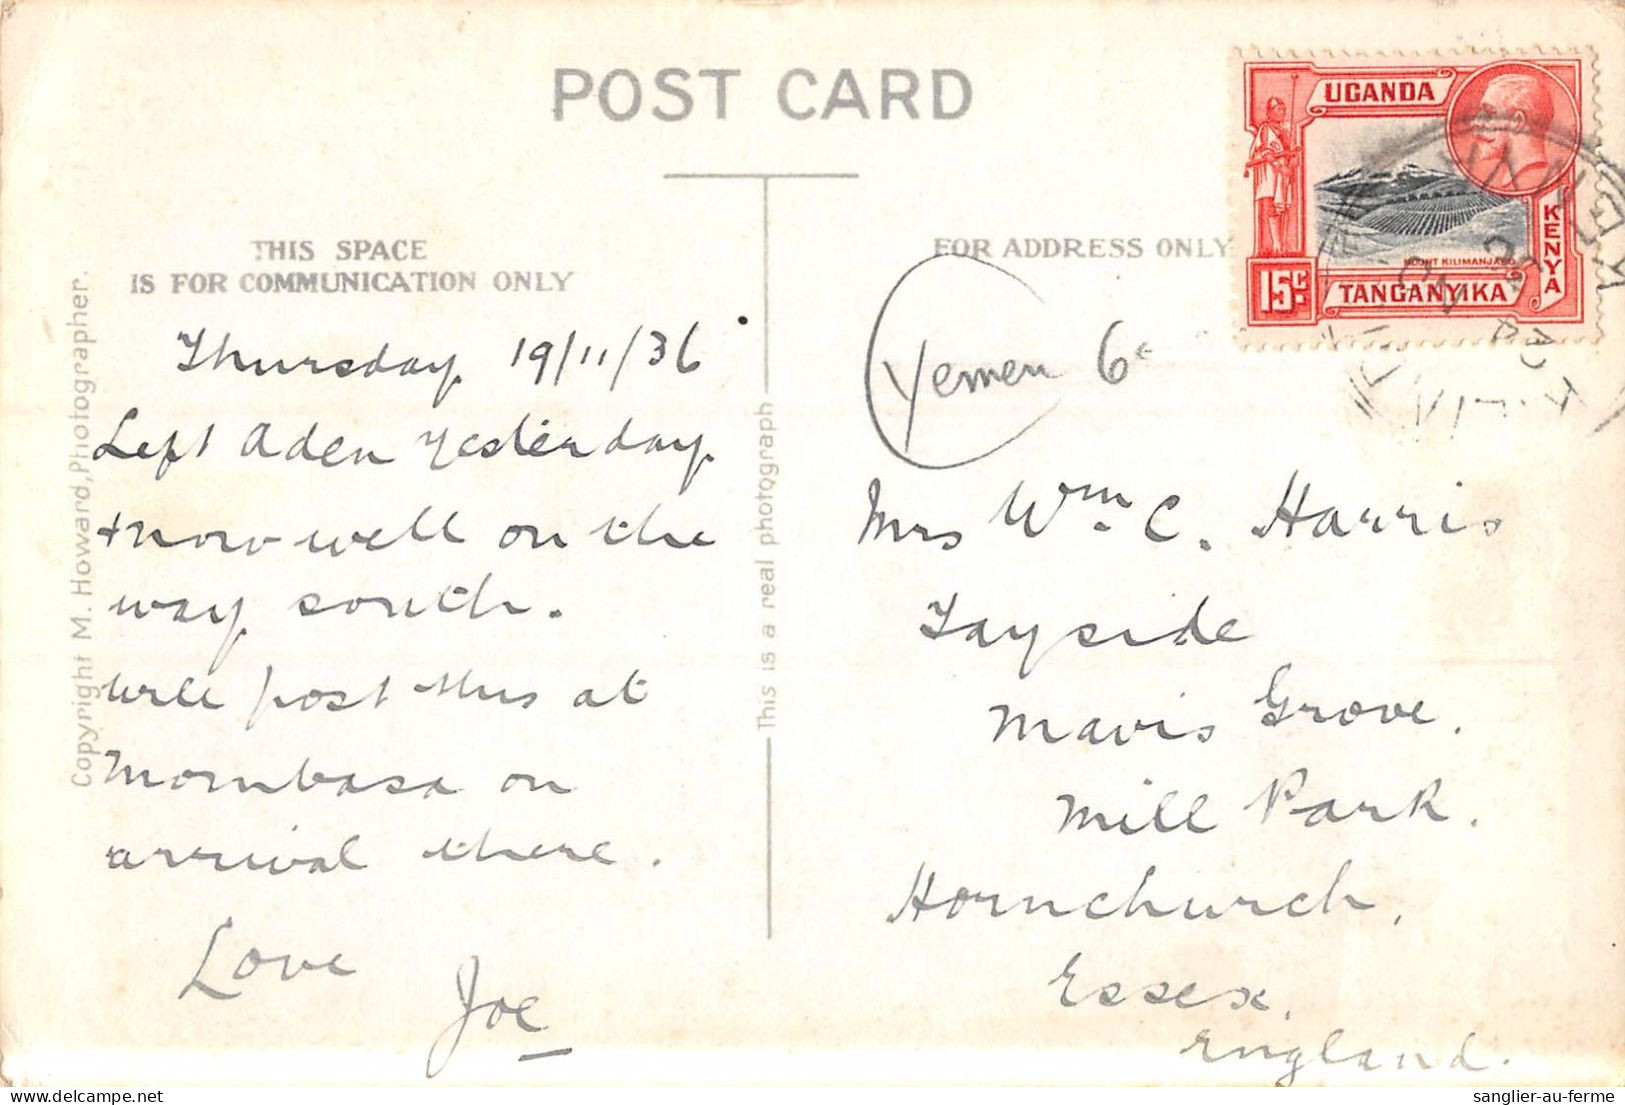 POST CARD
THIS SPACE
IS FOR COMMUNICATION ONLY
Thursday 19/11/36
Left Aden yesterday
+ now well on the
way south.
Will post this at
Mombasa on
arrival there.
Love
Joe
Copyright M. Howard, Photographer.
This is a real photograph
FOR ADDRESS ONLY
Yemen 6e
Mrs Wm C. Harris
Tayside
Mavis Grove.
Mill Park.
Hornchurch.
Essex.
England.
UGANDA
KENYA
MOUNT KILIMANJARO
15c
TANGANYIKA
KENYA
sanglier-au-ferme